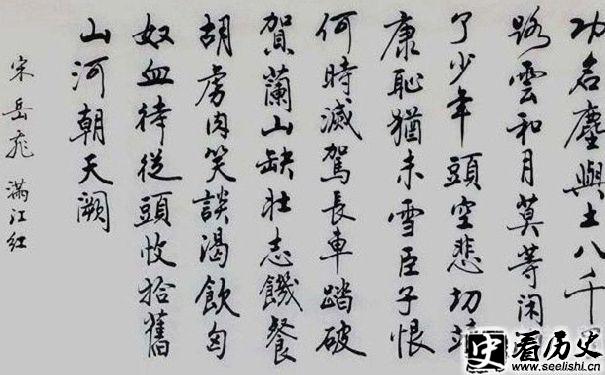 功名塵與土八千里
路雲和月莫等闲
了少年頭空悲切靖
康恥猶未雪臣子恨
何時滅駕長車踏破
賀蘭山缺壯志饑餐
胡虜肉笑談渴飲匈
奴血待從頭收拾舊
山河朝天闕
宋岳飛 滿江红
看历史
www.seelishi.cn